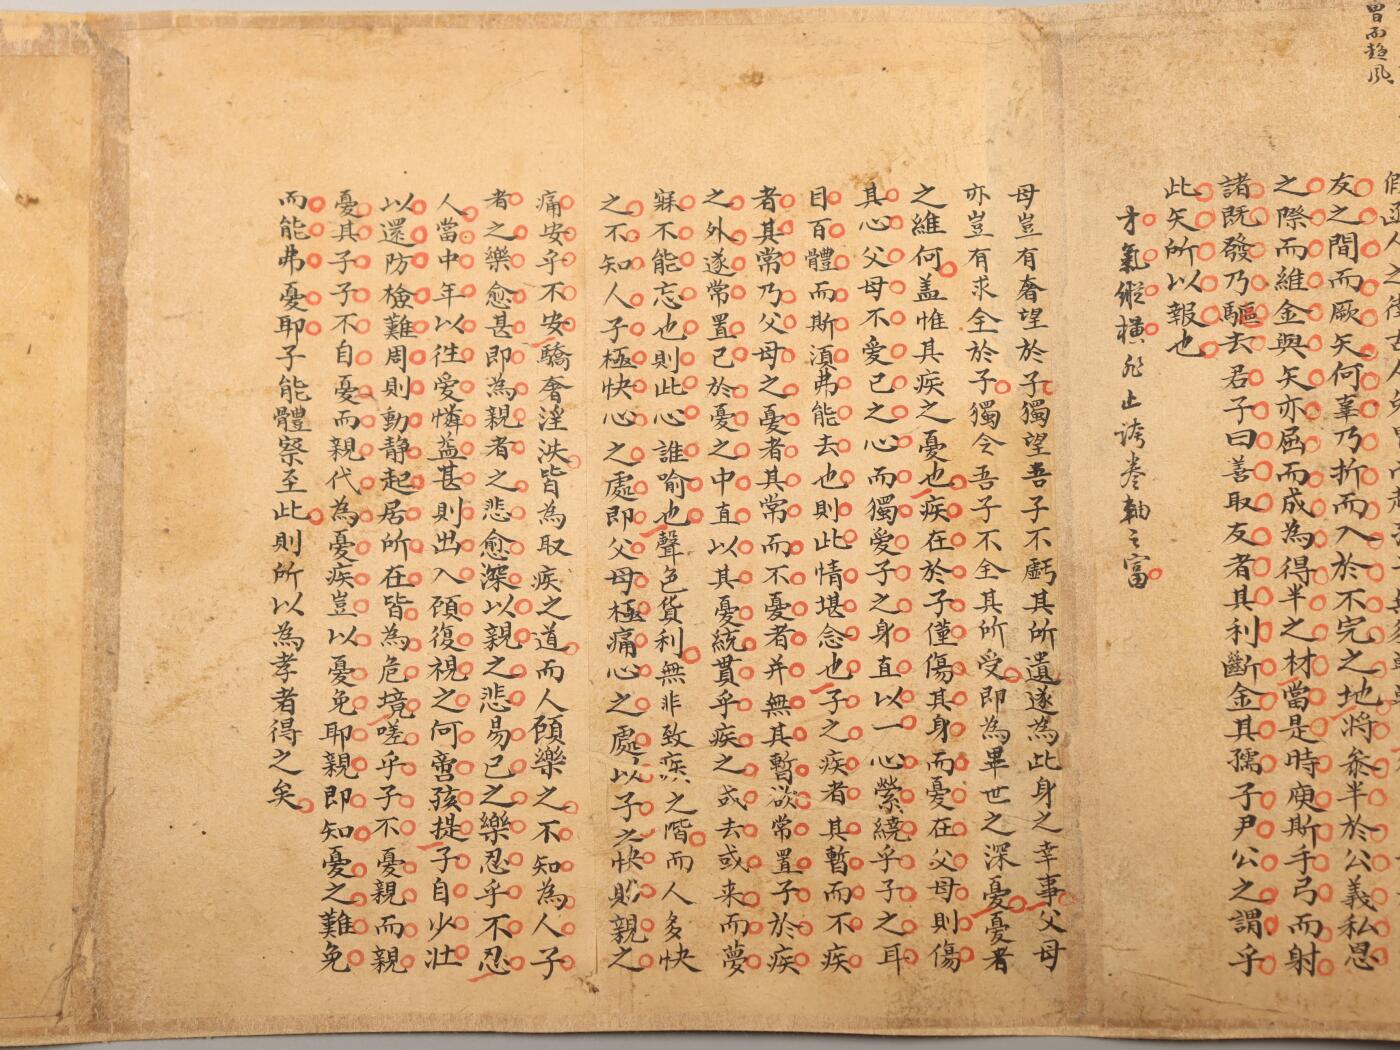 曾而趋風
友之間而厥矢何辜乃折而入於不完之地將叅半於公義私恩
之際而維金與矢亦屈而成為得半之材當是時庾斯手弓而射
諸既發乃驅去君子曰善取友者其利斷金其孺子尹公之謂乎
此矢所以報也
才氣縱橫非止誇卷軸之富
母豈有奢望於子獨望吾子不虧其所遺遂為此身之幸事父母
亦豈有求全於子獨令吾子不全其所受即為畢世之深憂憂者
之維何盖惟其疾之憂也疾在於子僅傷其身而憂在父母則傷
其心父母不愛已之心而獨愛子之身直以一心縈繞乎子之耳
目百體而斯湏弗能去也則此情堪念也子之疾者其暫而不疾
者其常乃父母之憂者其常而不憂者并無其暫欲常置子於疾
之外遂常置已於憂之中直以其憂統貫乎疾之或去或来而夢
寐不能忘也則此心誰喻也聲色貨利無非致疾之階而人多快
之不知人子極快心之處即父母極痛心之處以子之快貽親之
痛安乎不安驕奢淫泆皆為取疾之道而人顧樂之不知為人子
者之樂愈甚即為親者之悲愈深以親之悲易已之樂忍乎不忍
人當中年以往愛憐益甚則出入顧復視之何啻孩提子自少壯
以還防檢難周則動静起居所在皆為危境嗟乎子不憂親而親
憂其子子不自憂而親代為憂疾豈以憂免耶親即知憂之難免
而能弗憂耶子能體察至此則所以為孝者得之矣